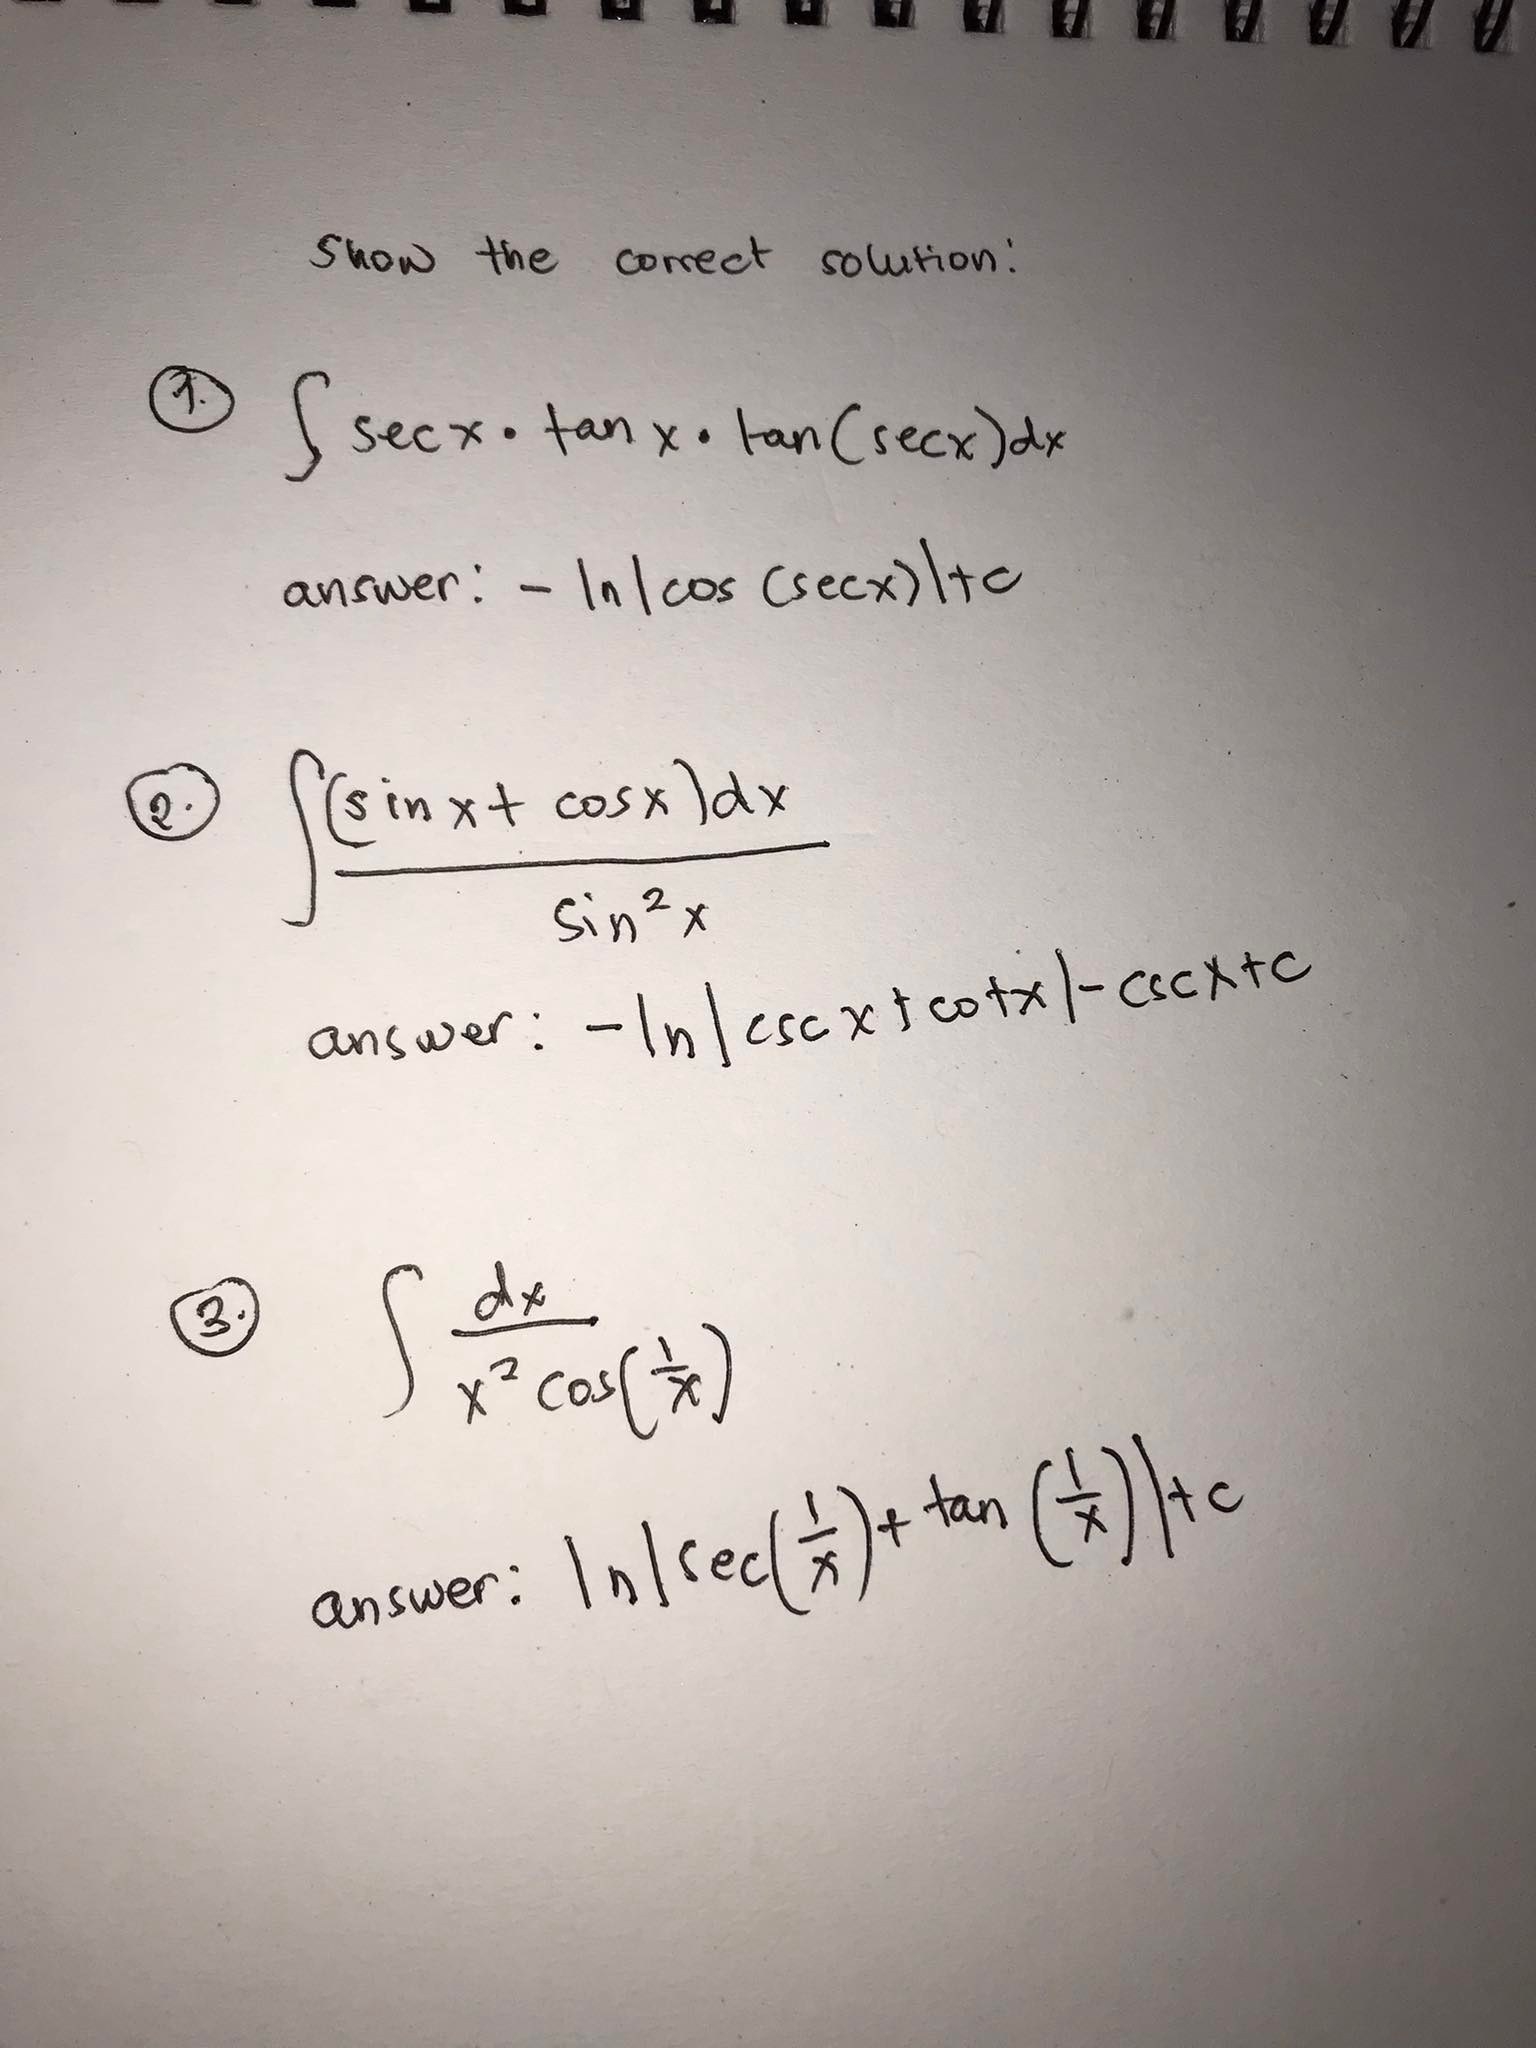 Show the correct solution:
1. ∫ secx • tan x • tan(secx)dx
answer: - ln|cos (secx)|+c
2. ∫ (sinx+ cosx)dx
sin²x
answer: -ln|cscx+cotx|-cscx+c
3. ∫ dx
x² cos(1/x)
answer: ln|sec(1/x)+ tan (1/x)|+c